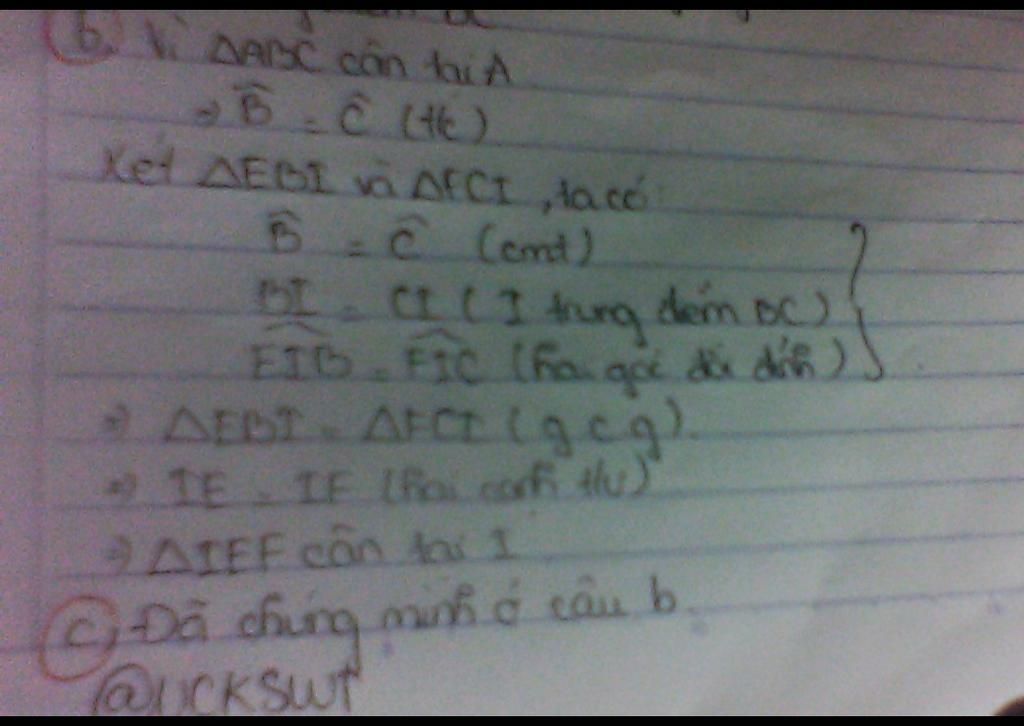 b. Vì ΔABC cân tại A
⇒ B̂ = Ĉ (tc)
Xét ΔEBI và ΔFCI, ta có:
B̂ = Ĉ (cmt)
BI = CI (I trung điểm BC)
EIB = FIC (hai góc đối đỉnh)
⇒ ΔEBI = ΔFCI (g c g).
⇒ IE = IF (hai cạnh t/ư)
⇒ ΔIEF cân tại I
c, Đã chứng minh ở câu b.